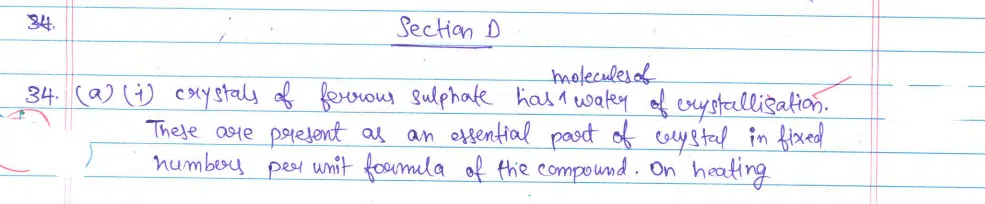 34.
Section D
34. (a) (i) crystals of ferrous sulphate has molecules of water of crystallization.
These are present as an essential part of crystal in fixed
numbers per unit formula of the compound. On heating